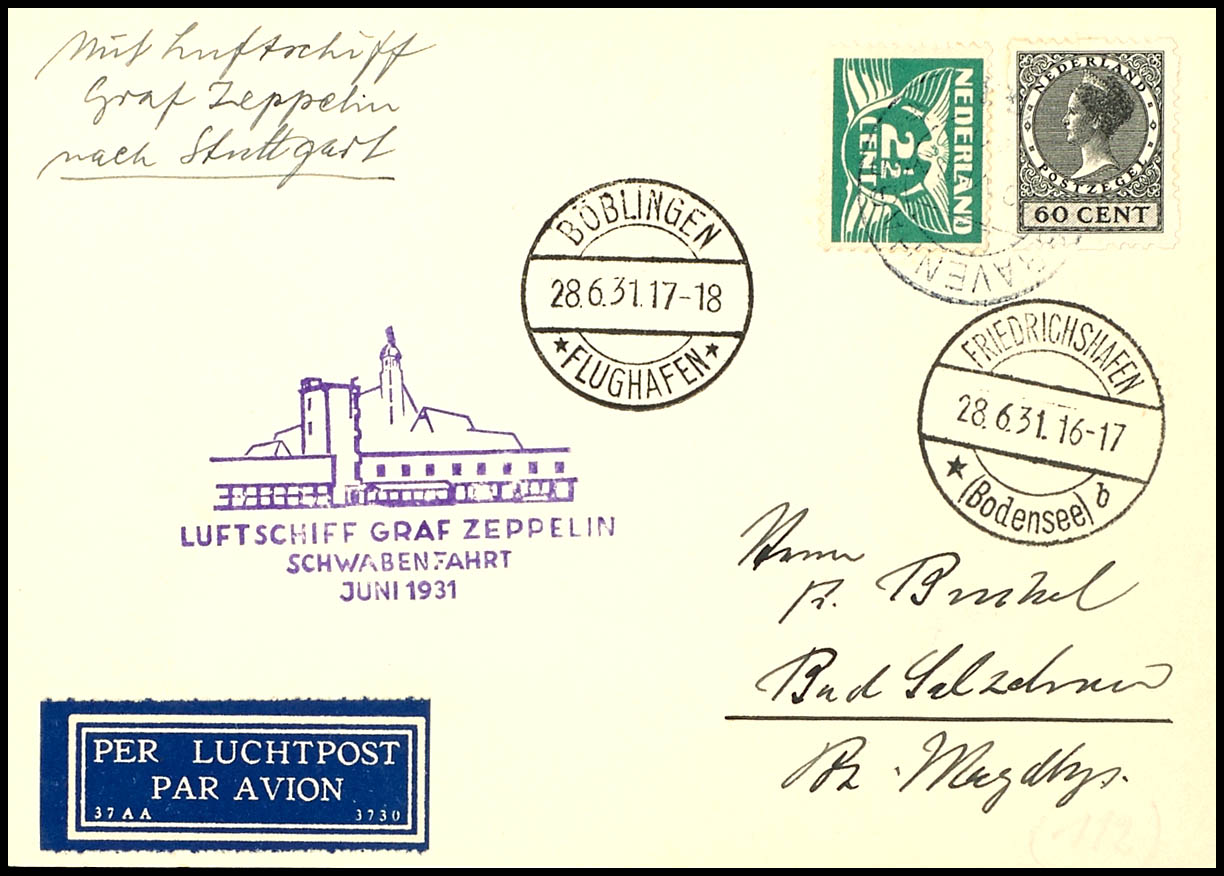 Mit Luftschiff
Graf Zeppelin
nach Stuttgart
NEDERLAND
2½
CENT
NEDERLAND
POSTZEGEL
60 CENT
RAVENH
BÖBLINGEN
28.6.31.17-18
★FLUGHAFEN★
FRIEDRICHSHAFEN
28.6.31.16-17
★ (Bodensee) b
LUFTSCHIFF GRAF ZEPPELIN
SCHWABENFAHRT
JUNI 1931
Herrn
Bad Salzelmen
Bz. Magdbg.
PER LUCHTPOST
PAR AVION
37AA 3730
(112)